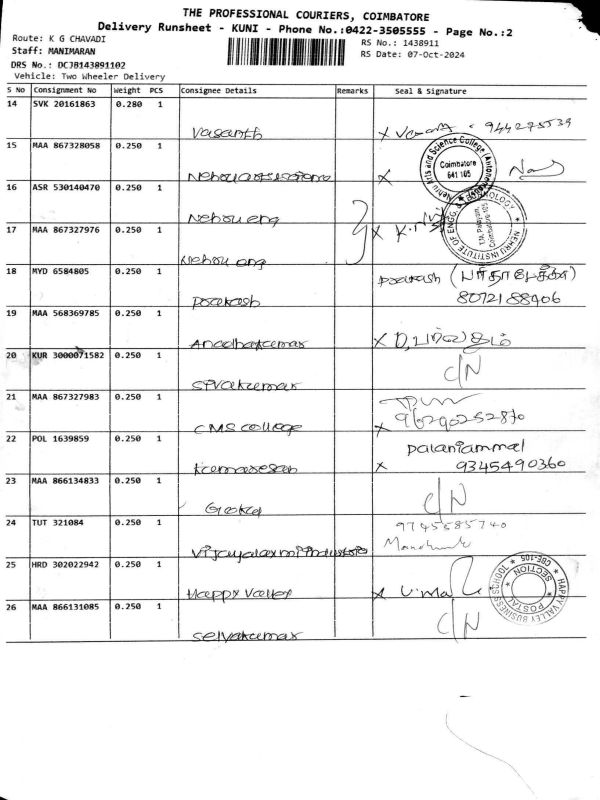 THE PROFESSIONAL COURIERS, COIMBATORE
Delivery Runsheet - KUNI - Phone No.:0422-3505555 - Page No.:2
Route: K G CHAVADI
RS No.: 1438911
Staff: MANIMARAN
RS Date: 07-Oct-2024
DRS No.: DCJB143891102
Vehicle: Two Wheeler Delivery
S No Consignment No Weight PCS Consignee Details Remarks Seal & Signature
14 SVK 20161863 0.280 1
Vasanth x
15 MAA 867328058 0.250 1
x Nehru Arts and Science College (Autonomous) Coimbatore 641 105
16 ASR 530140470 0.250 1
Nehru eng
17 MAA 867327976 0.250 1
Nehru eng x
NEHRU INSTITUTE OF ENGG. & TECHNOLOGY Coimbatore-105
18 MYD 6584805 0.250 1
Prakash
8072188406
Prakash
19 MAA 568369785 0.250 1
Anadhakumar x D.
20 KUR 3000071582 0.250 1
Sivakumar C/N
21 MAA 867327983 0.250 1
CMS college x
22 POL 1639859 0.250 1
Palaniammal
Kumaresan x 9345490360
23 MAA 866134833 0.250 1
C/N
24 TUT 321084 0.250 1
9745585740
25 HRD 302022942 0.250 1
Happy Valley x
HAPPY VALLEY BUSINESS SCHOOL CBE-105 POSTAL SECTION
26 MAA 866131085 0.250 1
Selvakumar C/N